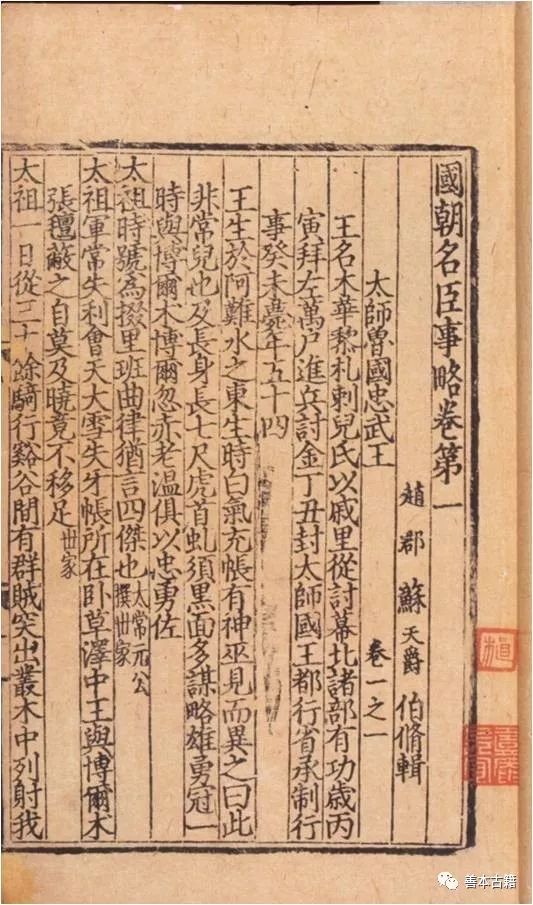 國朝名臣事略卷第一
趙郡蘇天爵伯脩輯
太師魯國忠武王 卷一之一
王名木華黎札剌兒氏以戚里從討幕北諸部有功歲丙
寅拜左萬戶進兵討金丁丑封太師國王都行省承制行
事癸未薨年五十四
王生於阿難水之東生時白氣充帳有神巫見而異之曰此
非常兒也及長身長七尺虎首虬須黑面多謀略雄勇冠一
時與博爾木博爾忽赤老溫俱以忠勇佐
太祖時號為掇里班曲律猶言四傑也太常元公撰世家
太祖軍常失利會天大雪失牙帳所在卧草澤中王與博爾木
張氊蔽之自莫及曉竟不移足世家
太祖一日從三十餘騎行谿谷間有群賊突出叢木中列射我
善本古籍